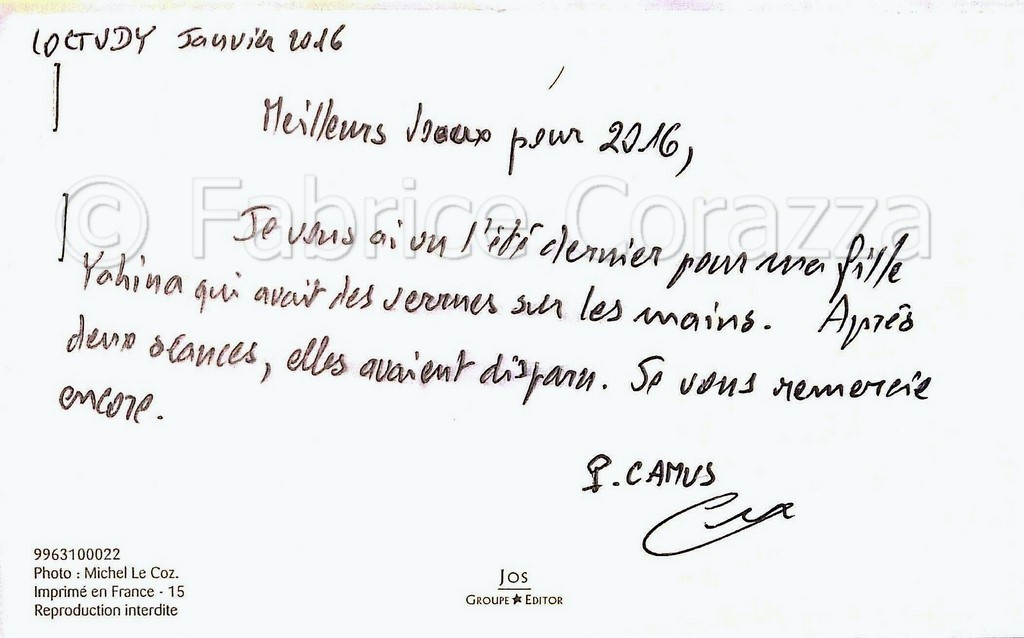 LOCTUDY Janvier 2016
Meilleurs vœux pour 2016,
© Fabrice Corazza
Je vous ai vu l'été dernier pour ma fille
Yahina qui avait des verrues sur les mains. Après
deux séances, elles avaient disparu. Je vous remercie
encore.
P. CAMUS
9963100022
Photo : Michel Le Coz.
Imprimé en France - 15
Reproduction interdite
JOS
GROUPE★EDITOR